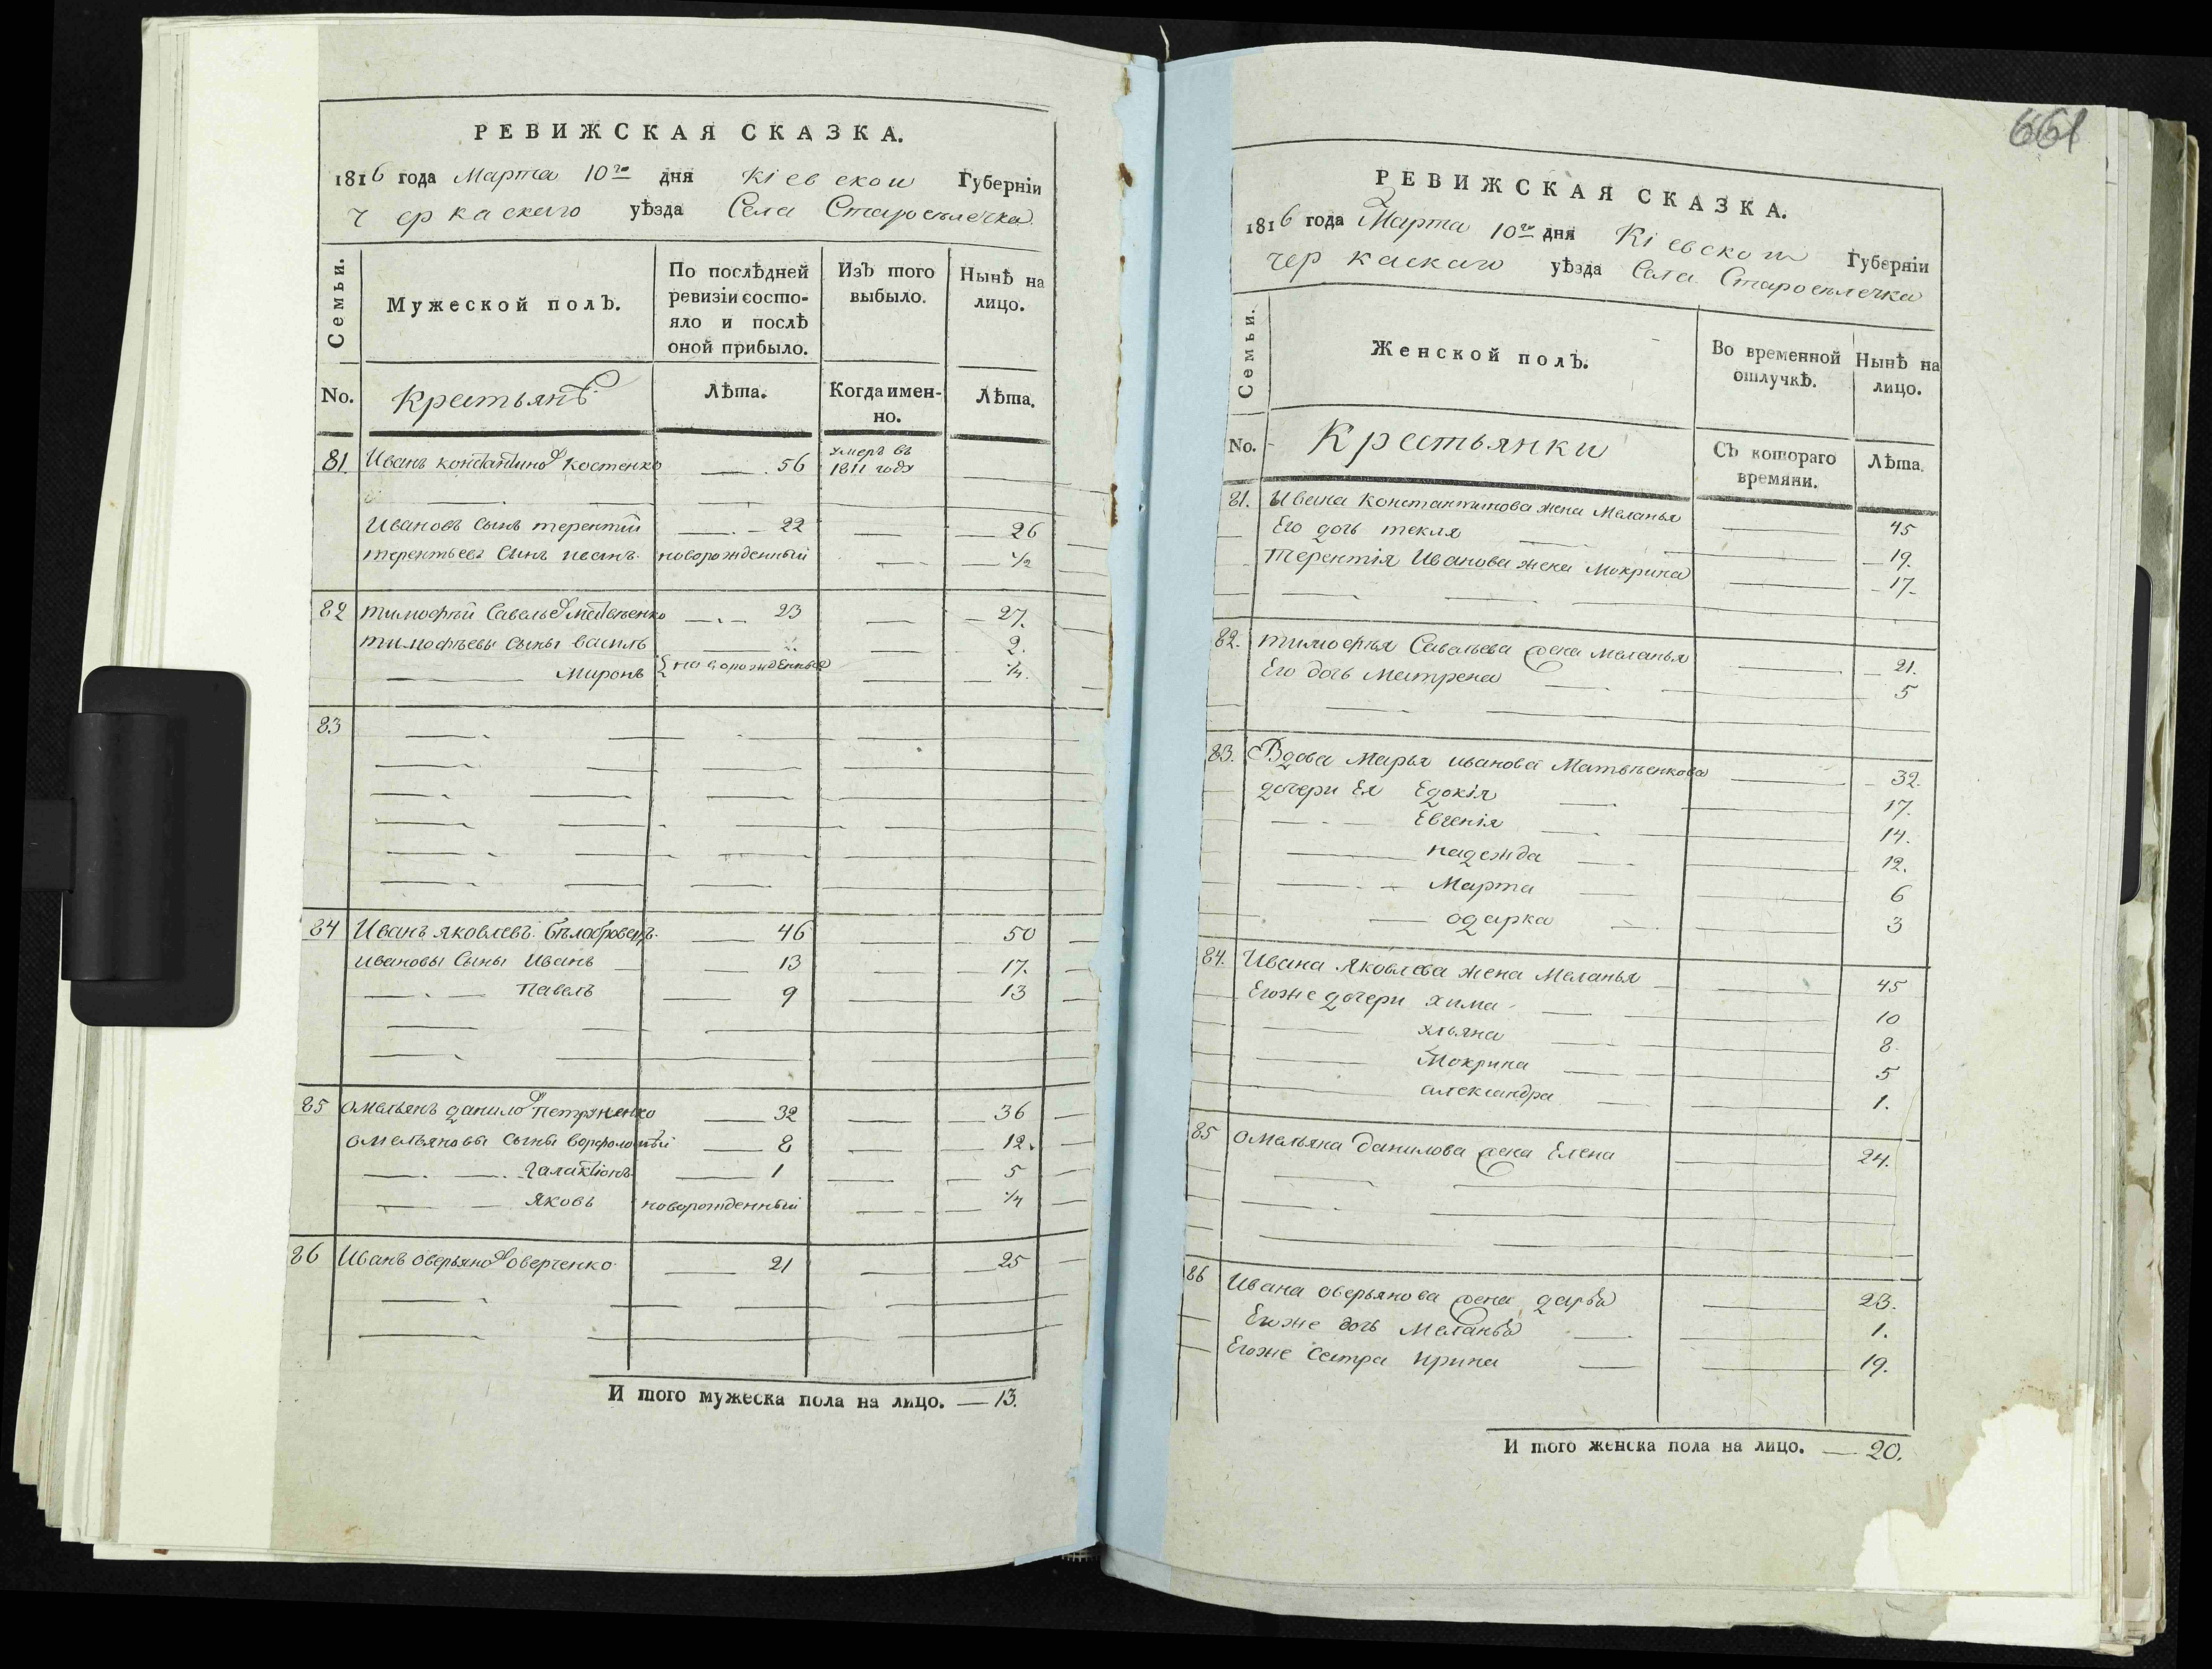 РЕВИЖСКАЯ СКАЗКА.
1816 года Марта 10го дня Кіевской Губерніи
Черкаскаго уѣзда Села Староселечка
Семьи.
Мужеской полЪ.
По послѣдней ревизіи состояло и послѣ оной прибыло.
ИзЪ того выбыло.
Нынѣ на лицо.
No. Крестьянъ Лѣта. Когда именно. Лѣта.
81. Иванъ константиновъ Костенко — 56 умеръ въ 1811 году
Ивановъ сынъ терентий — 22 — 26
терентьевъ сынъ иванъ новорожденный — 1/2
82 тимофѣй Савельевъ Матвѣенко — 23 — 27.
тимофѣевы сыны василь — 2.
— Миронъ новорожденные — 1/4.
83
84 Иванъ яковлевъ Бѣлобровецъ — 46 — 50
ивановы сыны Иванъ — 13 — 17.
— Павелъ — 9 — 13
85 омельянъ данилов Петрѣненко — 32 — 36
омельяновы сыны ворфоломѣй — 8 — 12.
— галактіонъ — 1 — 5
— Яковъ новорожденный — 1/4
86 Иванъ оверьянов оверченко — 21 — 25
И того мужеска пола на лицо. — 13.
661
РЕВИЖСКАЯ СКАЗКА.
1816 года Марта 10го дня Кіевской Губерніи
черкаскаго уѣзда Села Староселечка
Семьи.
Женской полЪ.
Во временной отлучкѣ.
Нынѣ на лицо.
No. Крестьянки СЪ котораго времяни. Лѣта.
81. Ивана Константинова жена Меланья — 45
Его дочь текля — 19.
Терентія Иванова жена Мокрина — 17.
82. тимофѣя Савельева жена меланья — 21.
Его дочь Матрена — 5
83. Вдова Марья иванова Матвѣенкова — 32.
дочери Ея Едокія — 17.
— Евгенія — 14.
— надежда — 12.
— Марта — 6
— одарка — 3
84. Ивана Яковлева жена Меланья — 45
Егоже дочери хима — 10
— ульяна — 8.
— Мокрина — 5
— александра — 1.
85 омельяна данилова жена Елена — 24.
86 Ивана оверьянова жена дарья — 23.
Егоже дочь Меланья — 1.
Егоже Сестра ирина — 19.
И того женска пола на лицо. — 20.